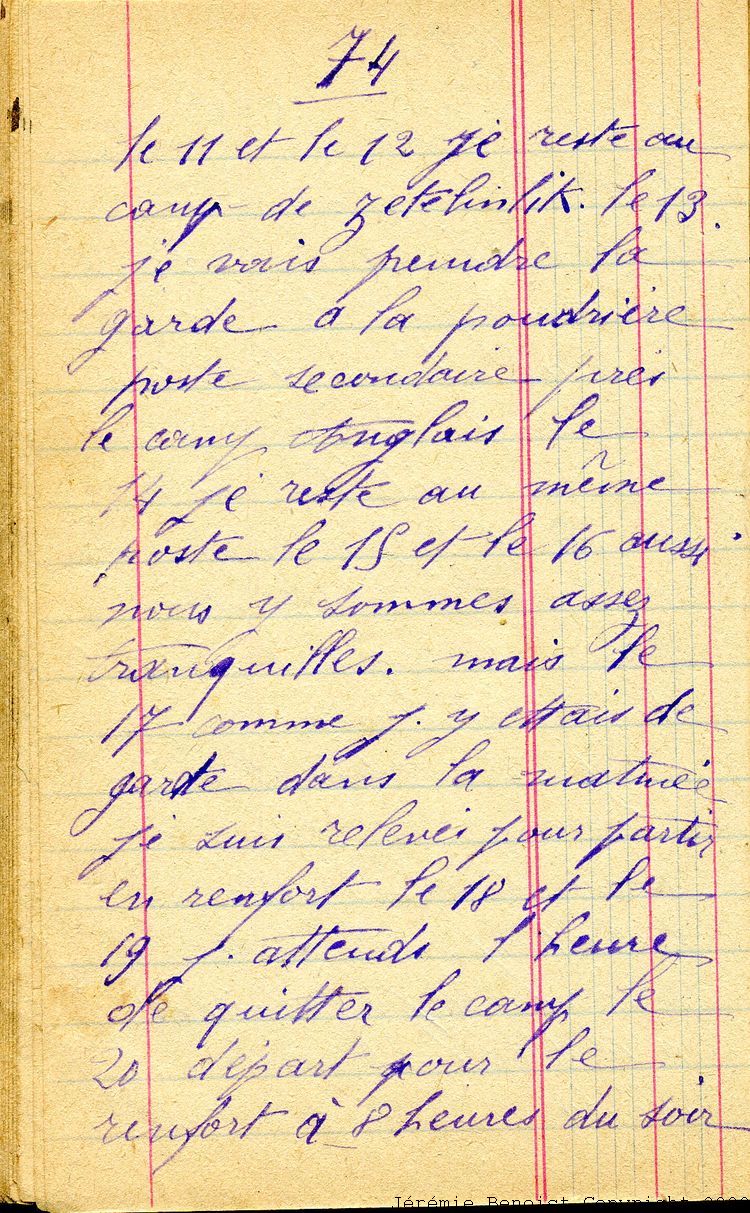 74
le 11 et le 12 je reste au
camp de Zetelinlik. le 13
je vais prendre la
garde a la poudrière
poste secondaire près
le camp Anglais le
14 je reste au même
poste le 15 et le 16 aussi
nous y sommes assez
tranquilles. mais le
17 comme j. y ettais de
garde dans la matinée
je suis relevéi pour partir
en renfort le 18 et le
19 j. attends l'heure
de quitter le camp le
20 départ pour le
renfort à 8 heures du soir
Jérémie Benoist Copyright